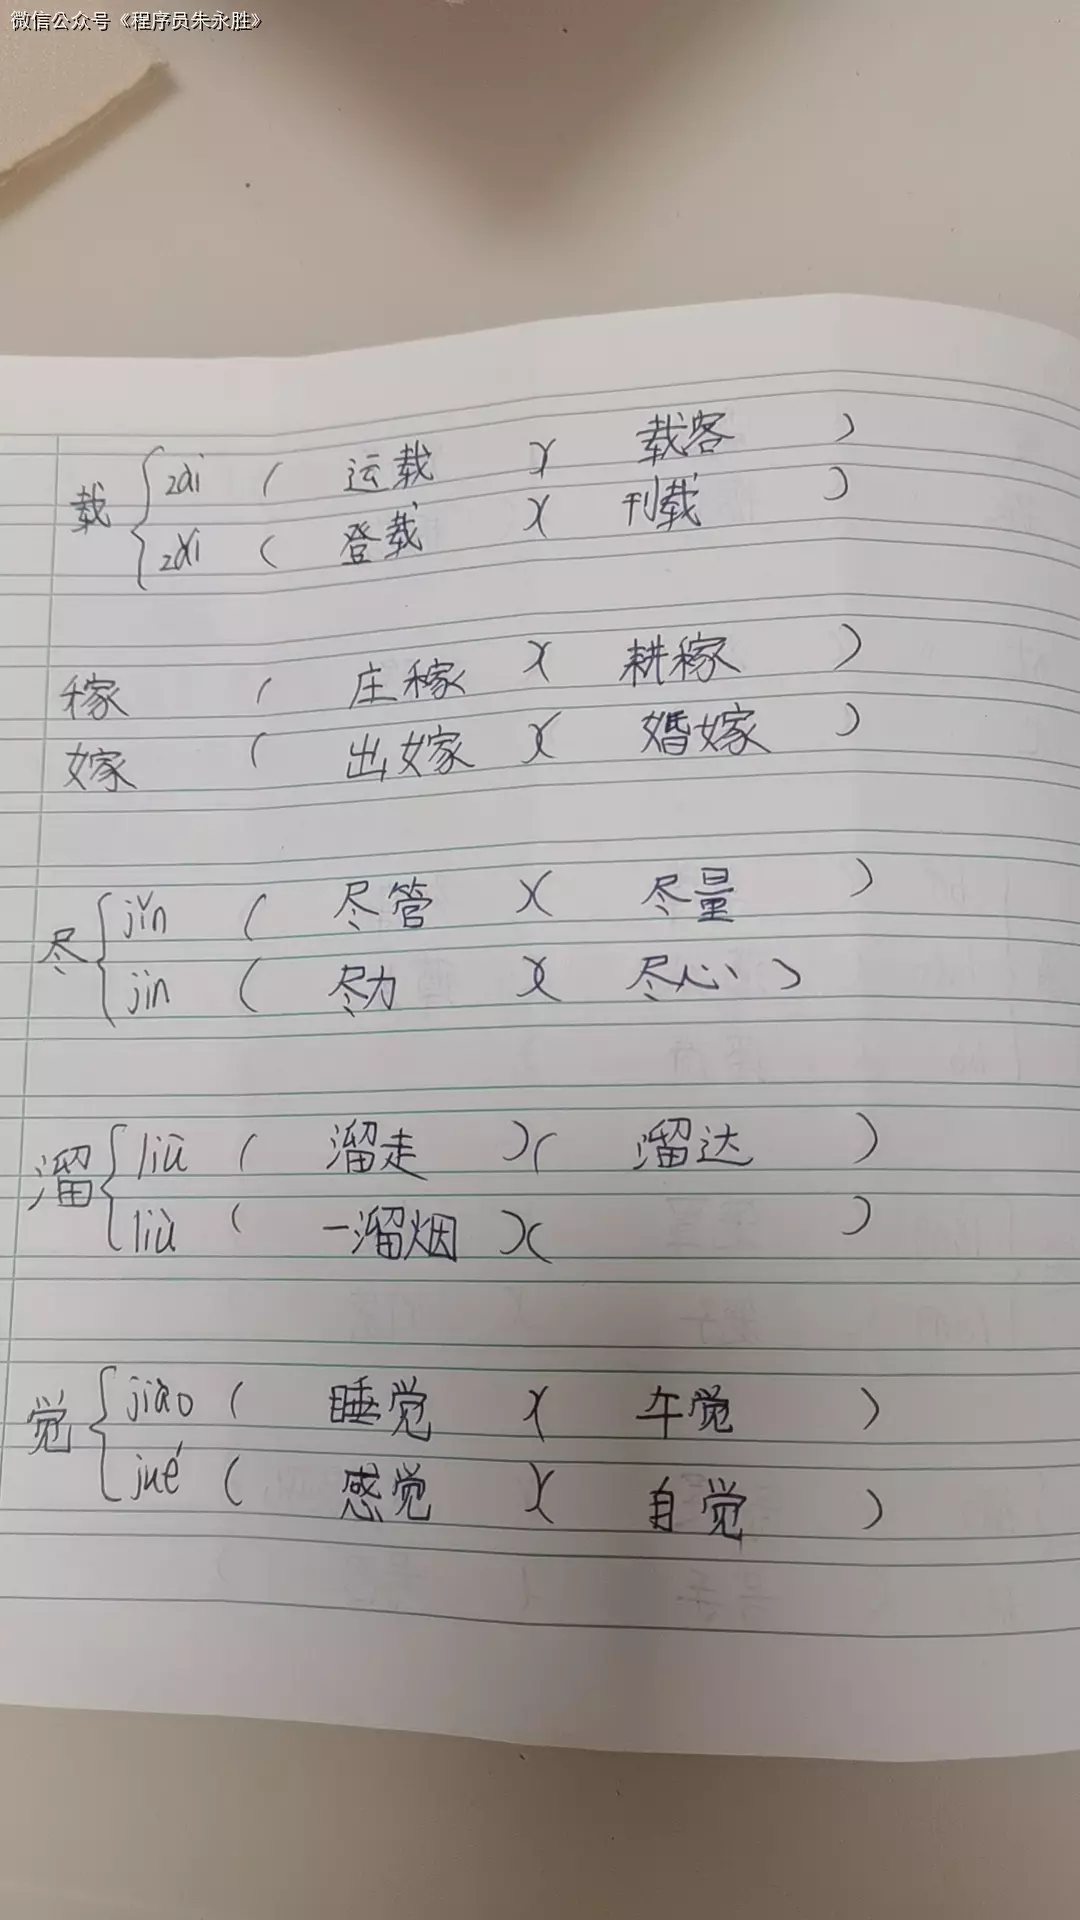 微信公众号《程序员朱永胜》
载 zài ( 运载 )( 载客 )
zǎi ( 登载 )( 刊载 )
稼 ( 庄稼 )( 耕稼 )
嫁 ( 出嫁 )( 婚嫁 )
尽 jǐn ( 尽管 )( 尽量 )
jìn ( 尽力 )( 尽心 )
溜 liū ( 溜走 )( 溜达 )
liù ( 一溜烟 )( )
觉 jiào ( 睡觉 )( 午觉 )
jué ( 感觉 )( 自觉 )